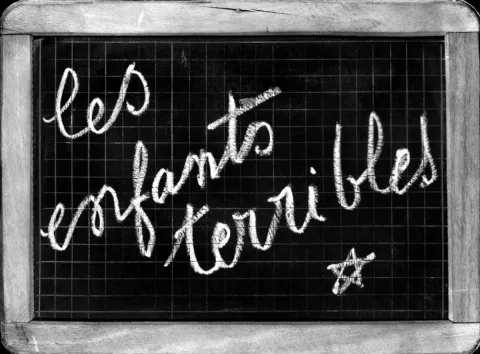 les
enfants
terribles